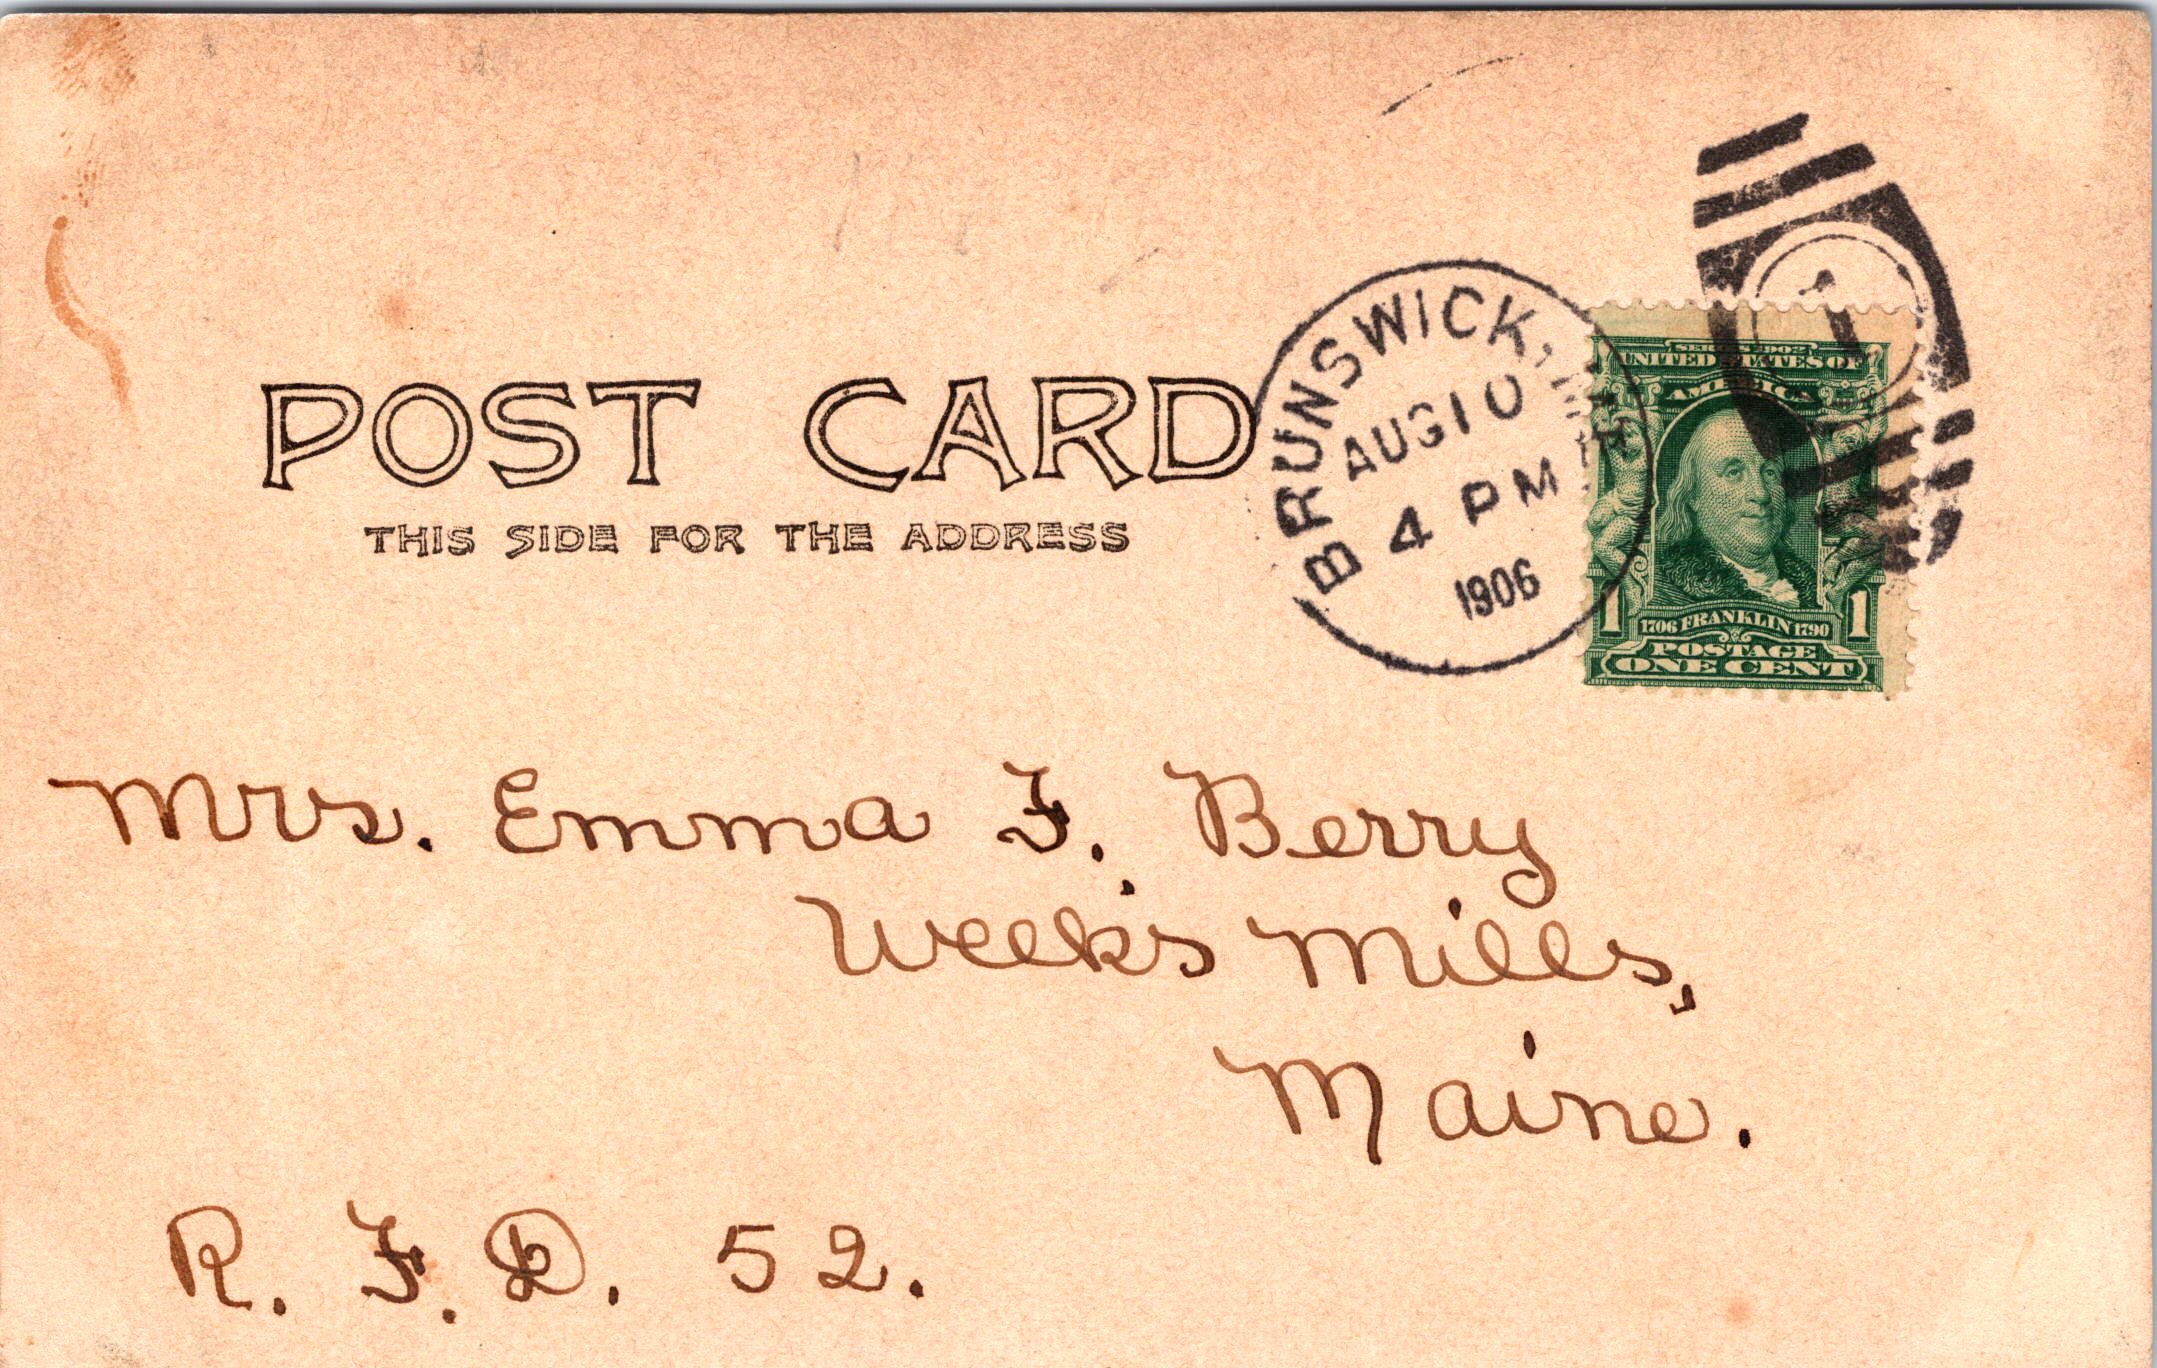 POST CARD
THIS SIDE FOR THE ADDRESS
BRUNSWICK,
AUG 10
4 PM
1906
SERIES 1902
UNITED STATES OF
AMERICA
1 1706 FRANKLIN 1790 1
POSTAGE
ONE CENT
Mrs. Emma F. Berry
Week's Mills,
Maine.
R. F. D. 52.